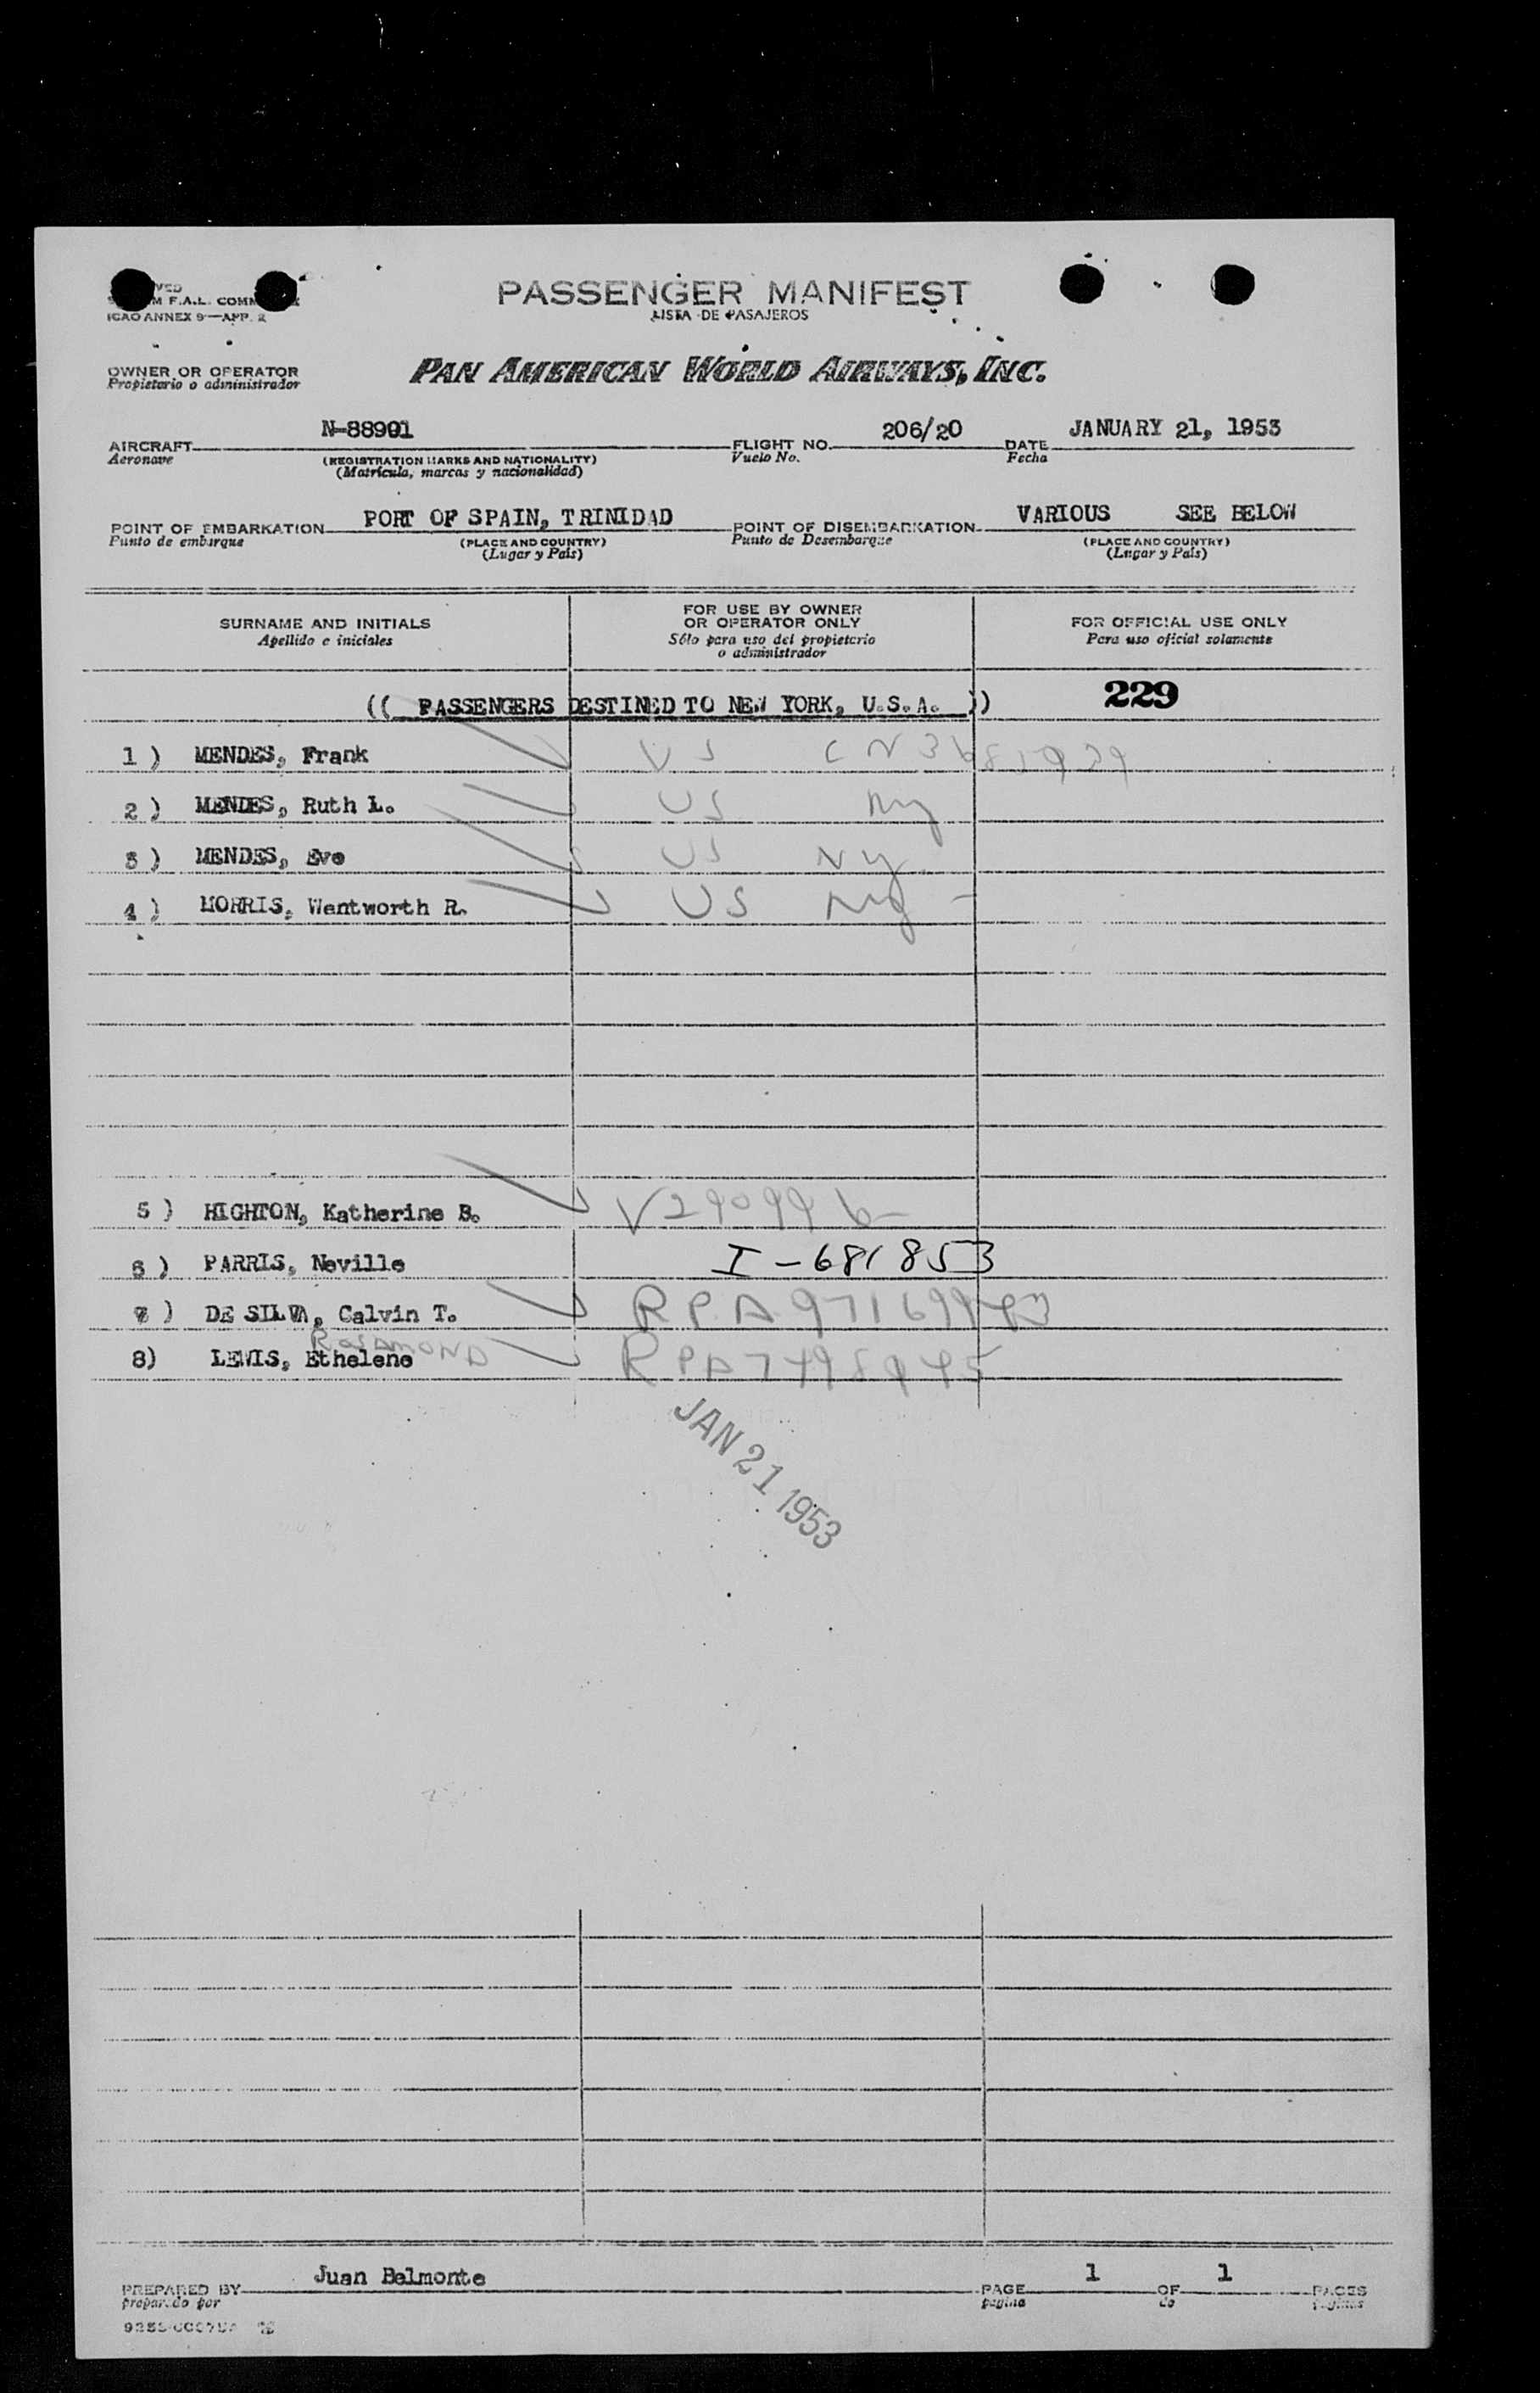 PASSENGER MANIFEST
LISTA DE PASAJEROS
M F.A.L. COMM
ICAO ANNEX 9—APP. 2
OWNER OR OPERATOR
Propietario o administrador
PAN AMERICAN WORLD AIRWAYS, INC.
AIRCRAFT N-88901 FLIGHT NO. 206/20 DATE JANUARY 21, 1953
Aeronave (REGISTRATION MARKS AND NATIONALITY) Vuelo No. Fecha
(Matricula, marcas y nacionalidad)
POINT OF EMBARKATION PORT OF SPAIN, TRINIDAD POINT OF DISEMBARKATION VARIOUS SEE BELOW
Punto de embarque (PLACE AND COUNTRY) Punto de Desembarque (PLACE AND COUNTRY)
(Lugar y País) (Lugar y País)
SURNAME AND INITIALS
Apellido e iniciales
FOR USE BY OWNER
OR OPERATOR ONLY
Sólo para uso del propietario
o administrador
FOR OFFICIAL USE ONLY
Para uso oficial solamente
(( PASSENGERS DESTINED TO NEW YORK, U.S.A. )) 229
1 ) MENDES, Frank US CN
2 ) MENDES, Ruth L. US Ny
3 ) MENDES, Eve US NY
4 ) MORRIS, Wentworth R. US Ny -
5 ) HIGHTON, Katherine B. V290996
6 ) PARRIS, Neville I-681853
7 ) DE SILVA, Calvin T. RPA
ROSAMOND
8) LEWIS, Ethelene RPA
JAN 21 1953
PREPARED BY Juan Belmonte PAGE 1 OF 1 PAGES
preparado por página de páginas